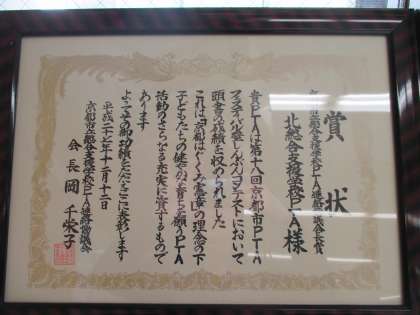 賞状
京都市立総合支援学校PTA連絡協議会長賞
北総合支援学校PTA様
貴PTAは第十八回京都市PTA
フェスティバルしんぶんコンテストにおいて
頭書の成績を収められました
これは「京都はぐくみ憲章」の理念の下
子どもたちの健やかな育ちを願うPTA
活動のさらなる充実に資するもので
あります
よってその御功績をたたえここに表彰します
平成二十七年十二月十二日
京都市立総合支援学校PTA連絡協議会
会長 岡 千栄子